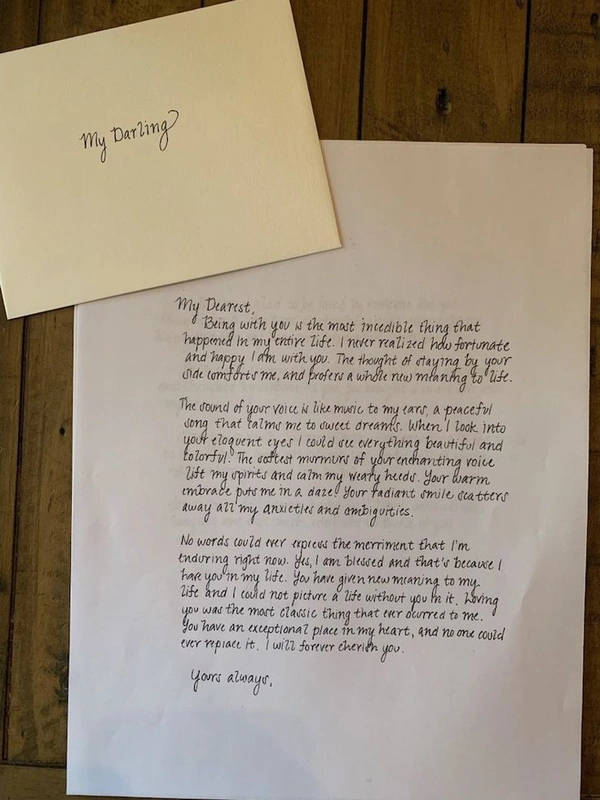 My Darling
My Dearest,
Being with you is the most incedible thing that
happened in my entire life. I never realized how fortunate
and happy I am with you. The thought of staying by your
side comforts me, and profers a whole new meaning to life.
The sound of your voice is like music to my ears, a peaceful
song that calms me to sweet dreams. When I look into
your eloquent eyes I could see everything beautiful and
colorful. The softest murmurs of your enchanting voice
lift my spirits and calm my weary heeds. Your warm
embrace puts me in a daze! Your radiant smile scatters
away all my anxieties and ambiguities.
No words could ever express the merriment that I'm
enduring right now. Yes, I am blessed and that's because I
have you in my life. You have given new meaning to my
life and I could not picture a life without you in it. Loving
you was the most classic thing that ever ocurred to me.
You have an exceptional place in my heart, and no one could
ever replace it. I will forever cherish you.
Yours always,